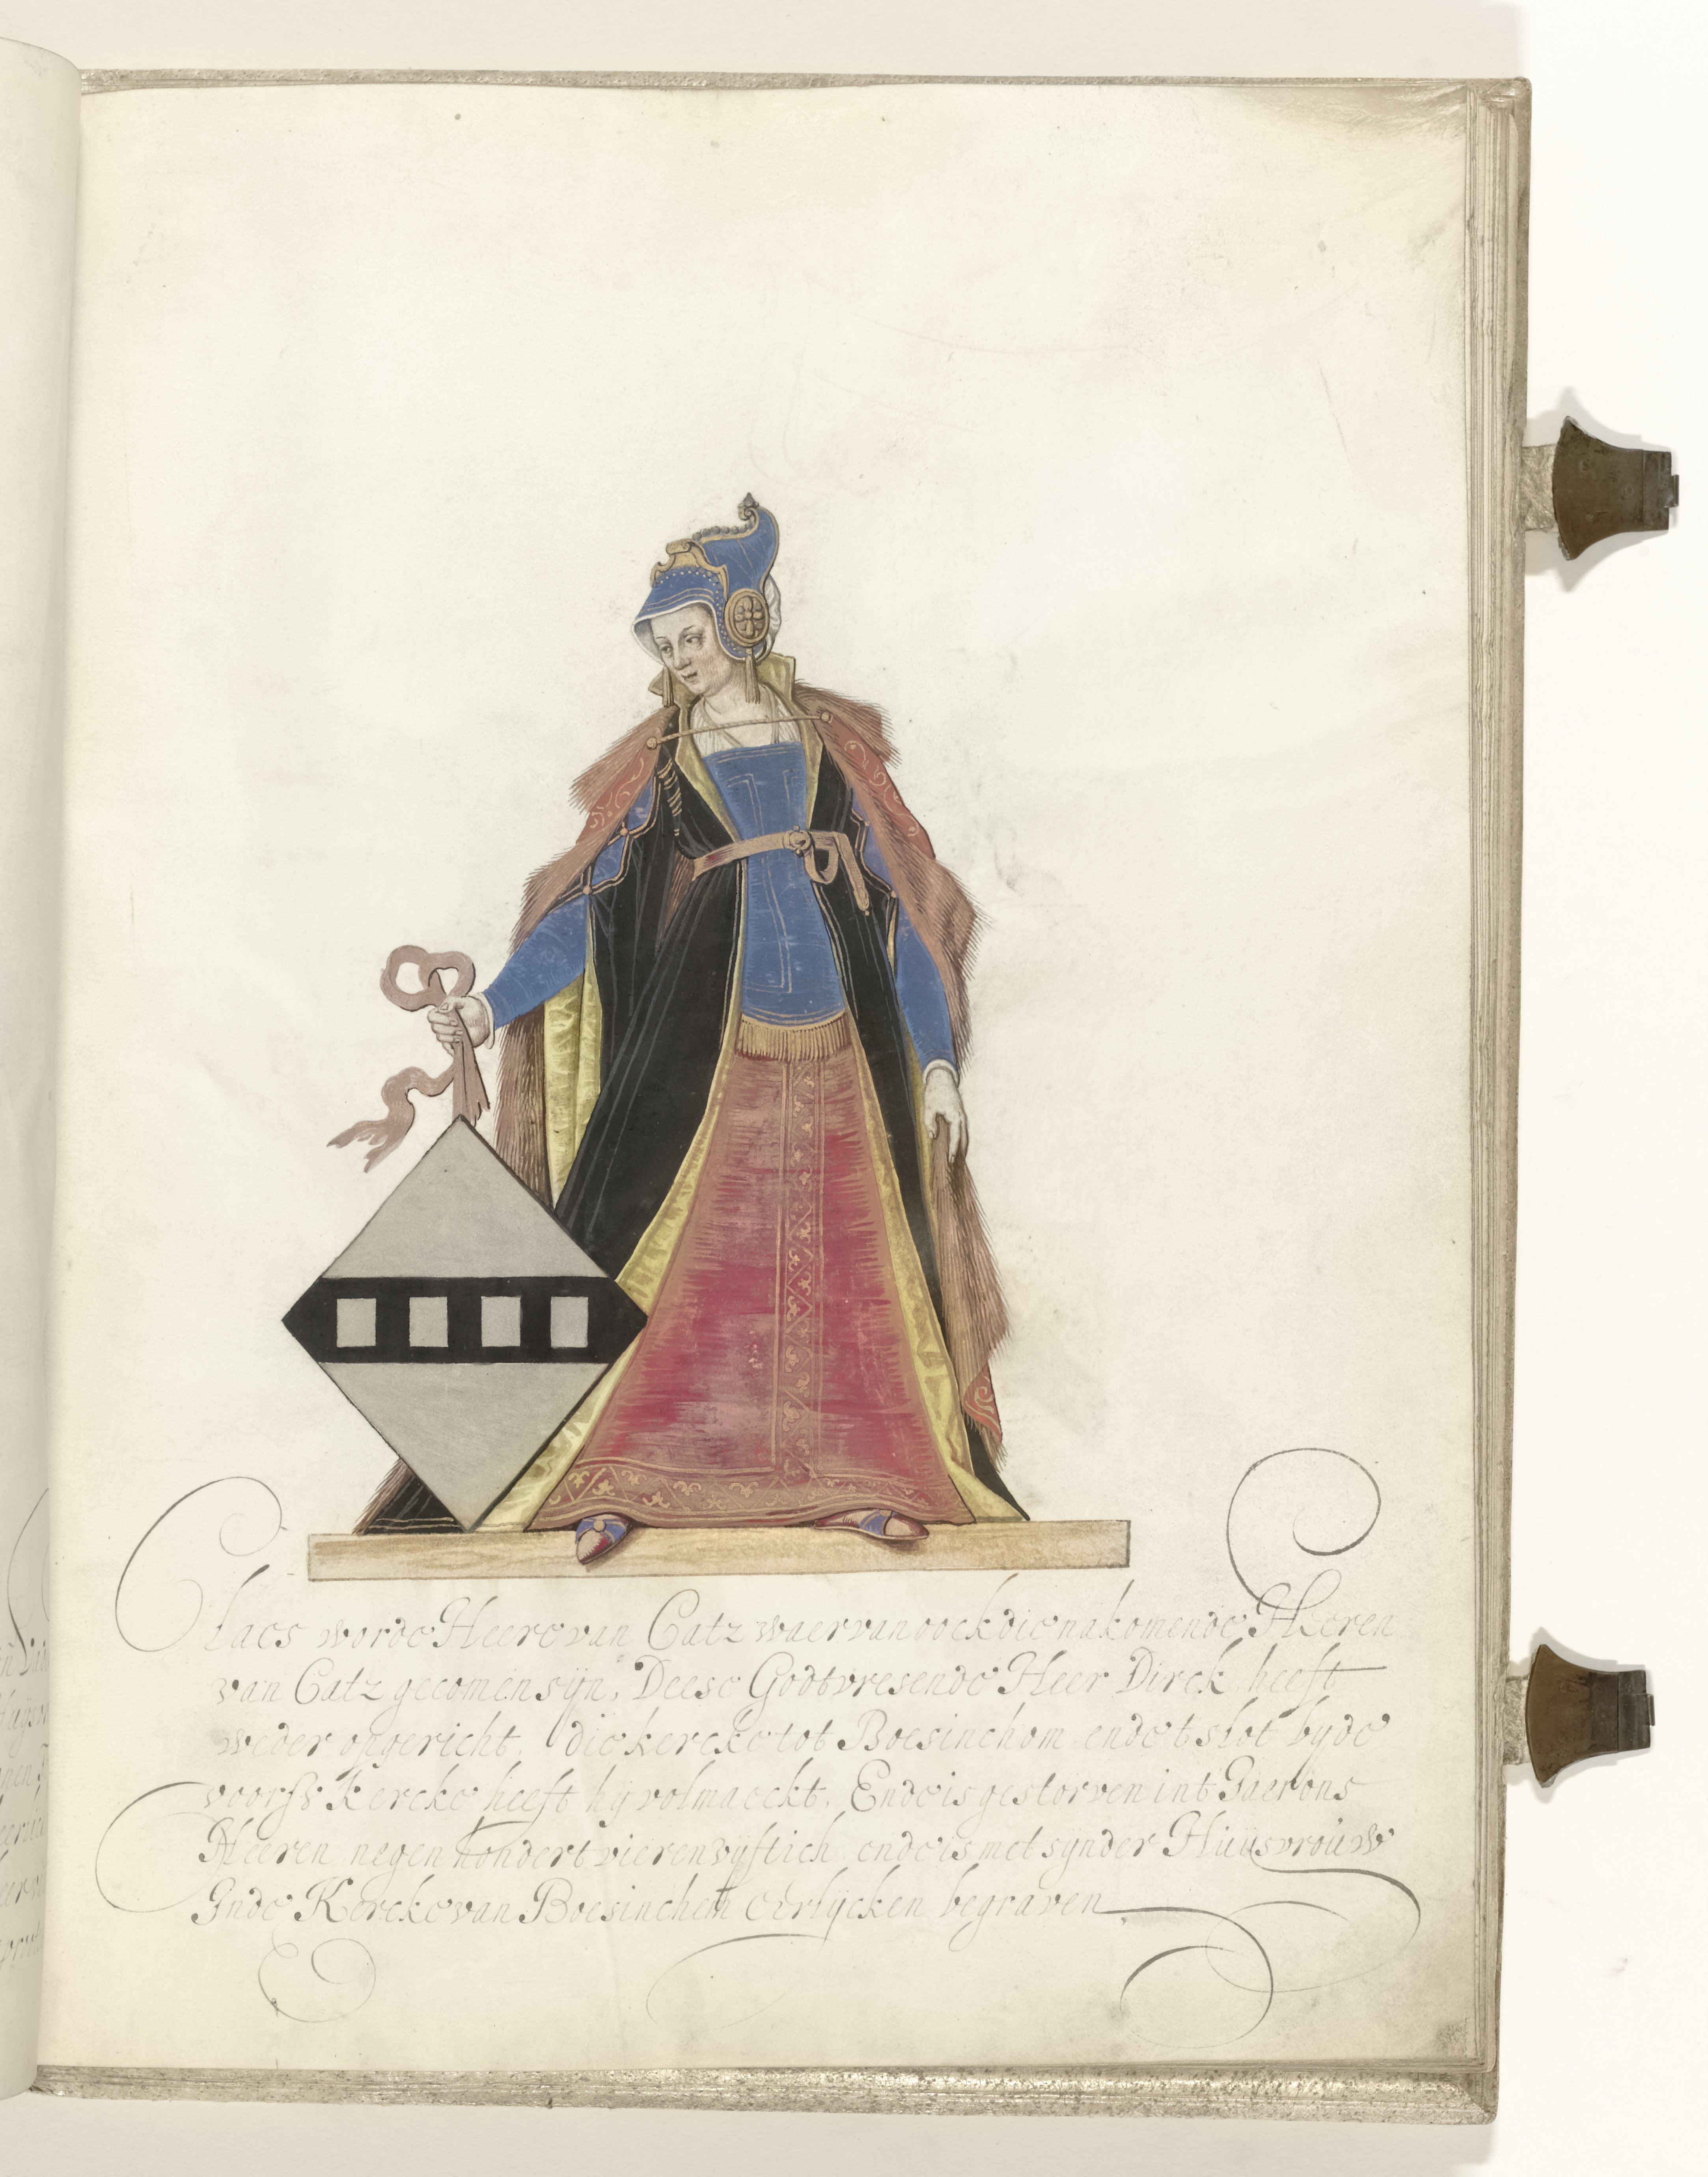 Claes worde Heere van Catz waer van oock die nakomende Heeren
van Catz gecomen sijn, Deese Godtvresende Heer Dirck heeft
weder opgericht, die kercke tot Boesinchom ende t slot by de
voorss Kercke heeft hy volmaeckt, Ende is gestorven int Jaer ons
Heeren negen hondert vierenvyftich ende is met synder Huusvrouw
Inde Kercke van Boesinchem eerlycken begraven